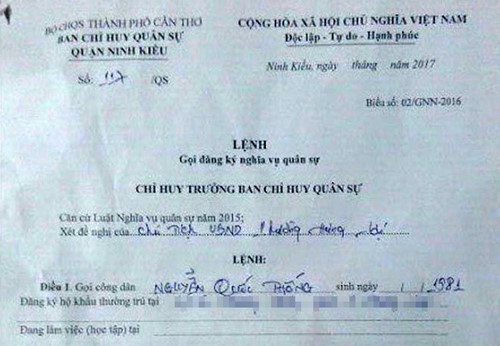 BỘ CHQS THÀNH PHỐ CẦN THƠ
BAN CHỈ HUY QUÂN SỰ
QUẬN NINH KIỀU
Số: 117 /QS
CỘNG HÒA XÃ HỘI CHỦ NGHĨA VIỆT NAM
Độc lập - Tự do - Hạnh phúc
Ninh Kiều, ngày tháng năm 2017
Biểu số: 02/GNN-2016
LỆNH
Gọi đăng ký nghĩa vụ quân sự
CHỈ HUY TRƯỞNG BAN CHỈ HUY QUÂN SỰ
Căn cứ Luật Nghĩa vụ quân sự năm 2015;
Xét đề nghị của Chủ Tịch UBND Phường Hưng Lợi
LỆNH:
Điều 1. Gọi công dân NGUYỄN QUỐC THỐNG sinh ngày / / 1981
Đăng ký hộ khẩu thường trú tại
Đang làm việc (học tập) tại